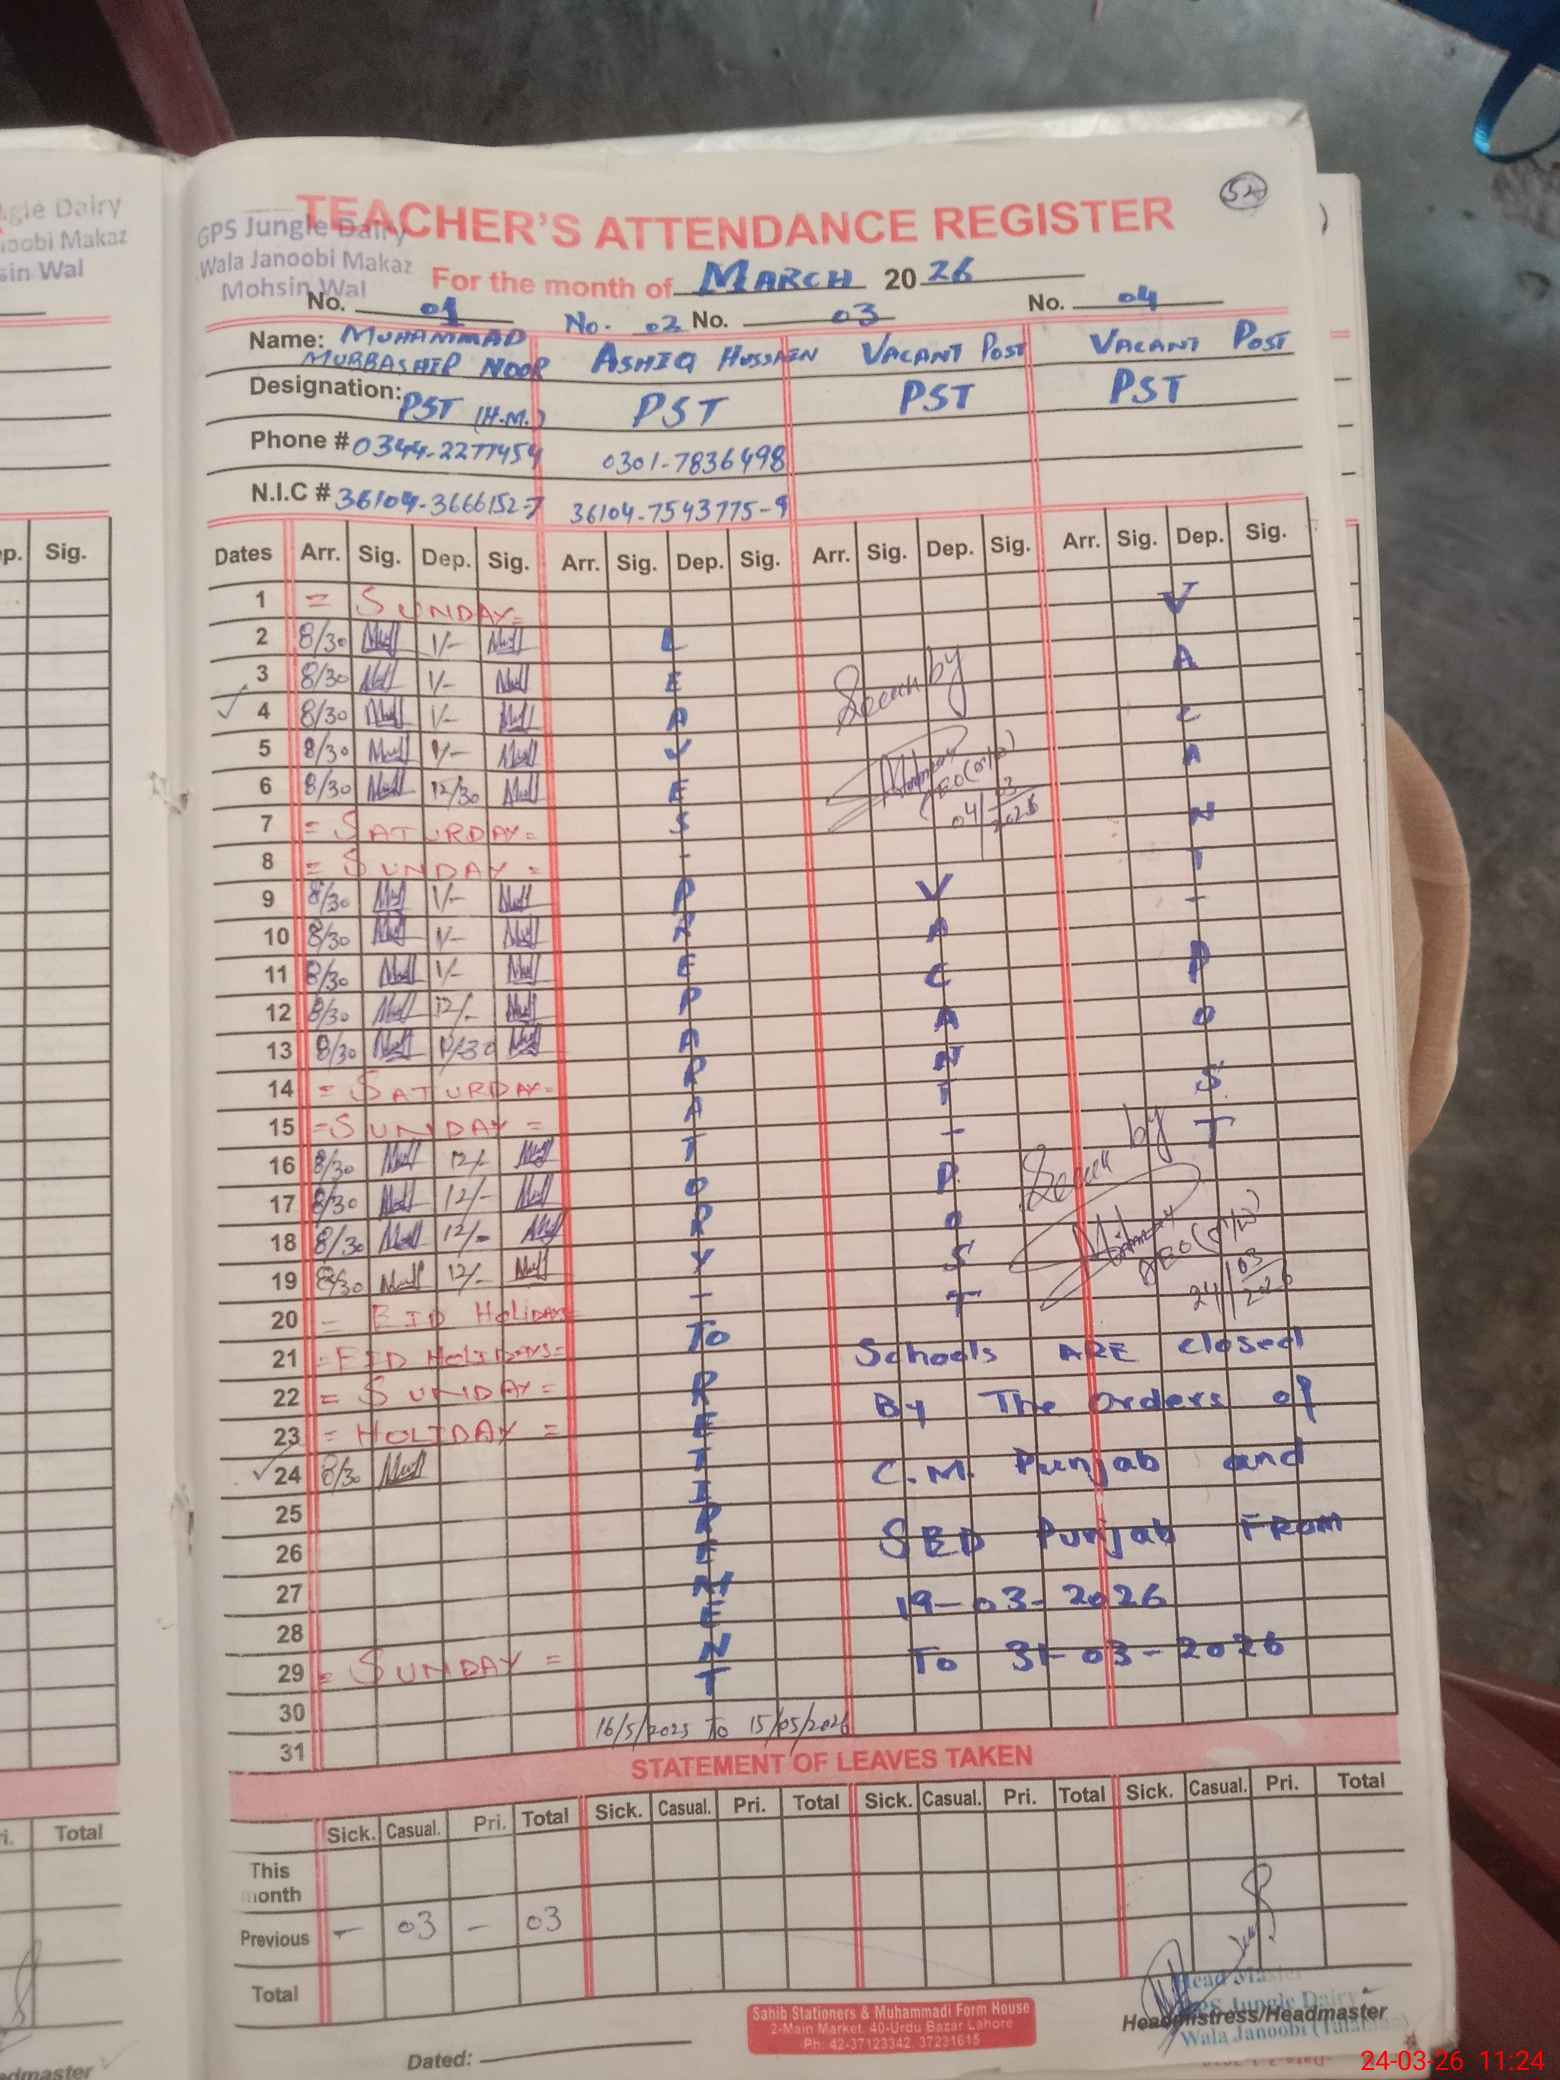 52
TEACHER'S ATTENDANCE REGISTER
GPS Jungle Dairy
Wala Janoobi Makaz
Mohsin Wal
For the month of MARCH 2026
No. 01 No. 02 No. 03 No. 04
Name: MUHAMMAD MUBBASHIR NOOR ASHIQ HUSSAIN VACANT POST VACANT POST
Designation: PST (H.M.) PST PST PST
Phone # 0344-2277454 0301-7836498
N.I.C # 36104-3666152-7 36104-7543775-9
Dates Arr. Sig. Dep. Sig. Arr. Sig. Dep. Sig. Arr. Sig. Dep. Sig. Arr. Sig. Dep. Sig.
1 = SUNDAY =
2 8/30 1/-
3 8/30 1/-
4 8/30 1/-
5 8/30 1/-
6 8/30 12/30
7 = SATURDAY =
8 = SUNDAY =
9 8/30 1/-
10 8/30 1/-
11 8/30 1/-
12 8/30 12/-
13 8/30
14 = SATURDAY =
15 = SUNDAY =
16 8/30 12/-
17 8/30 12/-
18 8/30 12/-
19 8/30 12/-
20 = EID HOLIDAY=
21 = EID HOLIDAYS=
22 = SUNDAY =
23 = HOLIDAY =
24 8/30
25
26
27
28
29 = SUNDAY =
30
31
LEAVES - PREPARATORY - TO RETIREMENT
16/5/2025 To 15/05/2026
VACANT - POST
VACANT - POST
Seen by
04/03/2026
Seen by
24/03/2026
Schools ARE closed
By The orders of
C.M. Punjab and
SED Punjab FROM
19-03-2026
To 31-03-2026
STATEMENT OF LEAVES TAKEN
Sick. Casual. Pri. Total Sick. Casual. Pri. Total Sick. Casual. Pri. Total Sick. Casual. Pri. Total
This month
Previous - 03 - 03
Total
Sahib Stationers & Muhammadi Form House
2-Main Market, 40-Urdu Bazar Lahore
Ph: 42-37123342, 37231615
Head Master
GPS Jungle Dairy
Headmistress/Headmaster
Wala Janoobi
Dated:
24-03-26 11:24
gle Dairy
noobi Makaz
sin Wal
ep. Sig.
ri. Total
admaster